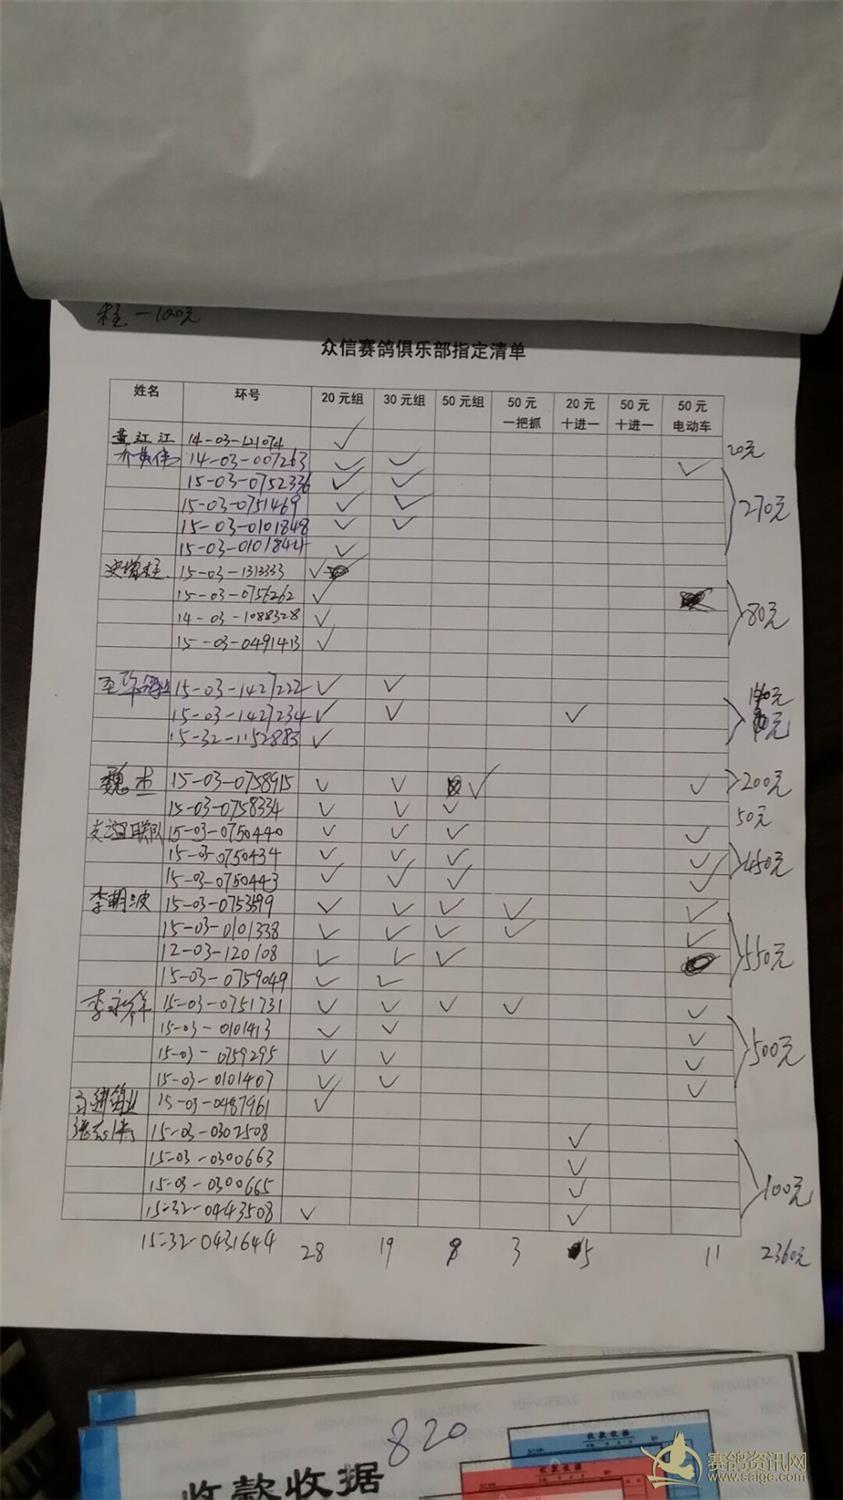 一100元
众信赛鸽俱乐部指定清单
姓名 环号 20元组 30元组 50元组 50元一把抓 20元十进一 50元十进一 50元电动车
黄江江 14-03-121074 ✓ 20元
14-03-007263 ✓ ✓ ✓
15-03-0752336 ✓ ✓ 270元
15-03-0751469 ✓ ✓
15-03-0101848 ✓ ✓
15-03-0101844 ✓
15-03-1313333 ✓
15-03-0756262 ✓ 80元
14-03-1088328 ✓
15-03-0491413 ✓
15-03-1427222 ✓ ✓
15-03-1427234 ✓ ✓ ✓
15-32-1152883 ✓
魏杰 15-03-0758915 ✓ ✓ ✓ ✓ 200元
15-03-0758334 ✓ ✓ ✓ 50元
联队 15-03-0750440 ✓ ✓ ✓ ✓
15-03-0750434 ✓ ✓ ✓ ✓ 450元
15-03-0750443 ✓ ✓ ✓ ✓
李朝波 15-03-0753599 ✓ ✓ ✓ ✓ ✓
15-03-0101338 ✓ ✓ ✓ ✓ ✓
12-03-120108 ✓ ✓ ✓ 550元
15-03-0759049 ✓ ✓
李永祥 15-03-0751731 ✓ ✓ ✓ ✓ ✓
15-03-0101413 ✓ ✓ ✓
15-03-0759295 ✓ ✓ ✓ 500元
15-03-0101407 ✓ ✓ ✓
鸽业 15-03-0487961 ✓
15-03-0302508 ✓
15-03-0300663 ✓
15-03-0300665 ✓ 100元
15-32-0443508 ✓ ✓
15-32-0431644 28 19 3 5 11 2360元
820
收款收据
收款收据
收款收据
赛鸽资讯网
www.saige.com